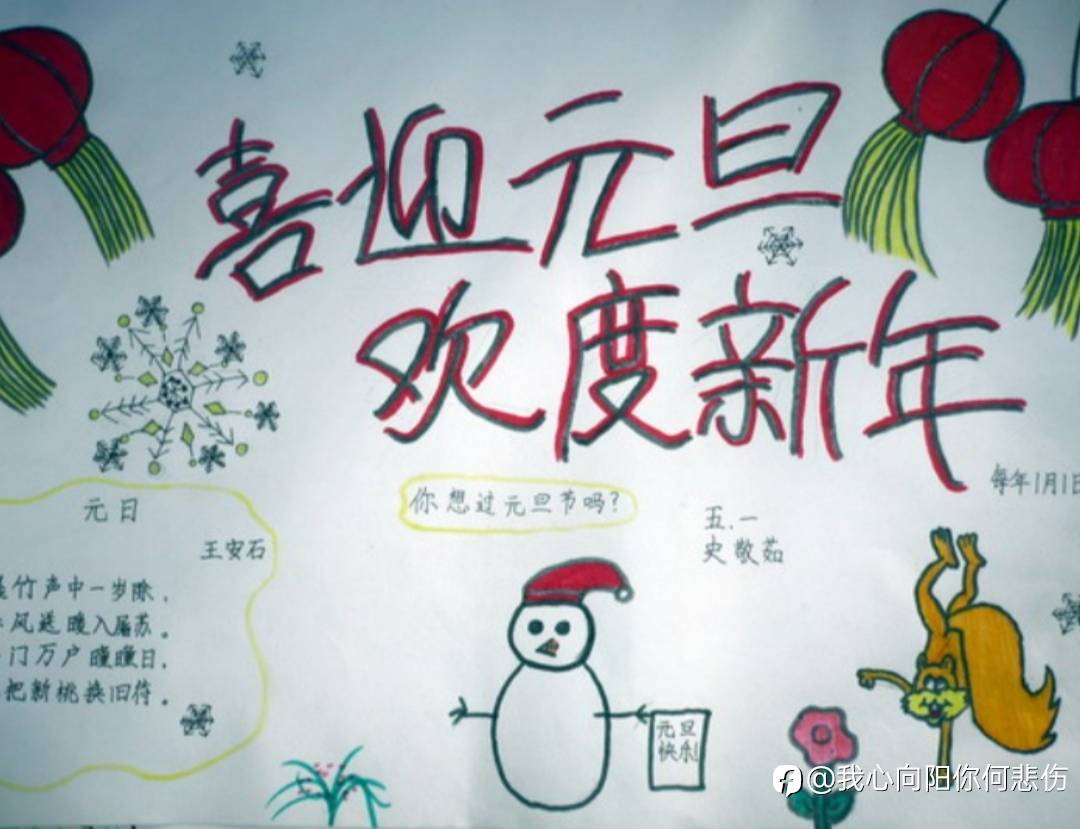 喜迎元旦
欢度新年
每年1月1日
你想过元旦节吗?
五.一
史敬茹
元日
王安石
竹声中一岁除,
风送暖入屠苏。
门万户瞳瞳日,
把新桃换旧符。
元旦
快乐
@我心向阳你何悲伤